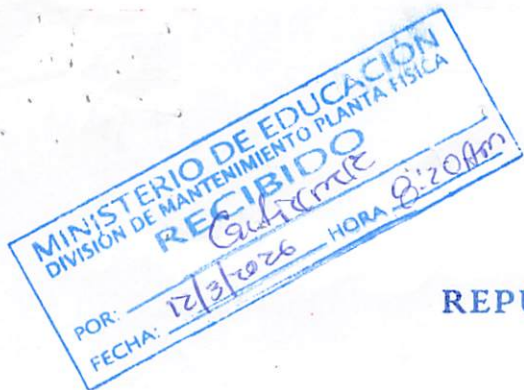 MINISTERIO DE EDUCACIÓN
DIVISIÓN DE MANTENIMIENTO PLANTA FÍSICA
RECIBIDO
POR:
FECHA: 12/3/2026 HORA 8:20 Am
REPU